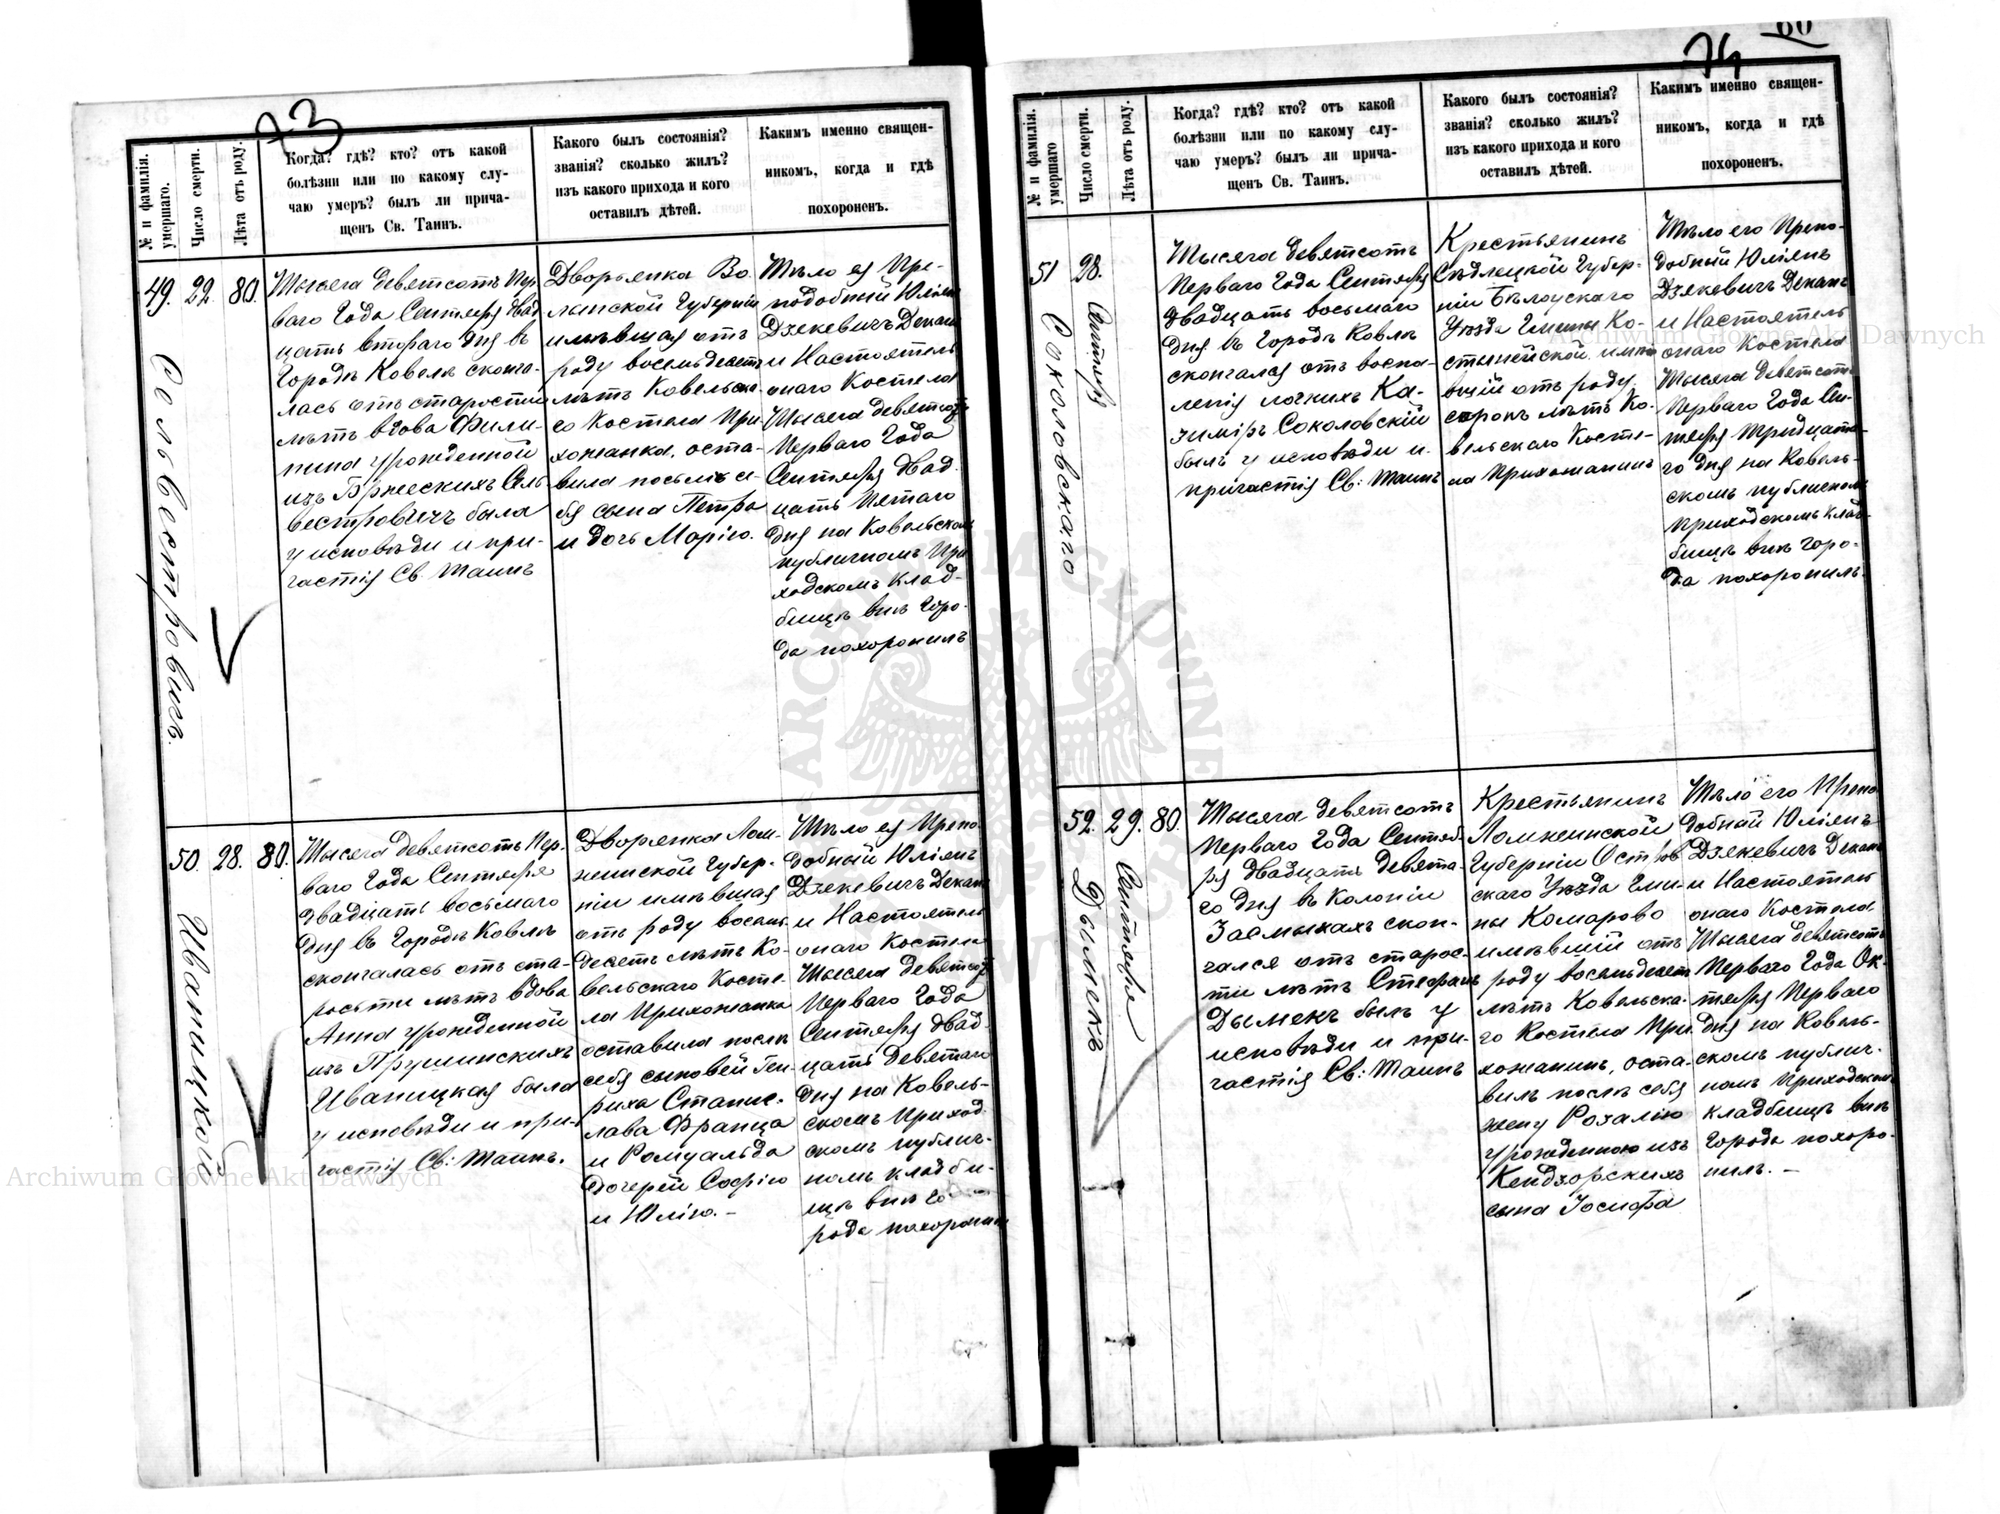 73
№ и фамилія. умершаго.
Число смерти.
Лѣта отъ роду.
Когда? гдѣ? кто? отъ какой
болѣзни или по какому слу-
чаю умеръ? былъ ли прича-
щенъ Св. Таинъ.
Какого былъ состоянія?
званія? сколько жилъ?
изъ какого прихода и кого
оставилъ дѣтей.
Каким именно священ-
никомъ, когда и гдѣ
похороненъ.
49. 22. 80.
Сельвестровичъ.
Тысяча девятсотъ Пер-
ваго Года Сентября двад
цать втораго дня въ
Городѣ Ковелѣ сконча-
лась отъ старости
лѣтъ вдова Фили-
пина урожденной
изъ Бржескихъ Сель-
вестровичъ была
у исповѣди и при-
частія Св. Таинъ
Дворянка Во-
лынской Губерніи
имѣвшая отъ
роду восемьдесятъ
лѣтъ Ковельска-
го Костела При-
хожанка, оста-
вила послѣ се-
бя сына Петра
и дочь Марію.
Тѣло ея Пре-
подобный Юліянъ
Дзякевичъ Деканъ
и Настоятель
онаго Костела
Тысяча девятсотъ
Перваго Года
Сентября двад-
цать Пятаго
дня на Ковельскомъ
публичномъ При
ходскомъ клад-
бищѣ внѣ Горо-
да похоронилъ
50. 28. 80.
Иваницкой
Тысяча девятсотъ Пер-
ваго Года Сентября
двадцать восьмаго
дня въ Городѣ Ковлѣ
скончалась отъ ста-
рости лѣтъ вдова
Анна урожденной
изъ Прушинскихъ
Иваницкая была
у исповѣди и при-
частія Св: Таинъ.
Дворянка Лом-
жинской Губер-
ніи имѣвшая
отъ роду восемь-
десятъ лѣтъ Ко-
вельскаго Косте-
ла Прихожанка
оставила послѣ
себя сыновей Ген-
риха Станис-
лава Франца
и Ромуальда
дочерей Софію
и Юлію. –
Тѣло ея Препо-
добный Юліянъ
Дзякевичъ Деканъ
и Настоятель
онаго Костела
Тысяча девятсотъ
Перваго Года
Сентября двад-
цать девятаго
дня на Ковель-
скомъ Приход-
скомъ публич-
номъ кладби-
щѣ внѣ Го-
рода похоронилъ
60
74
№ и фамилія. умершаго
Число смерти.
Лѣта отъ роду.
Когда? гдѣ? кто? отъ какой
болѣзни или по какому слу-
чаю умеръ? былъ ли прича-
щенъ Св. Таинъ.
Какого былъ состоянія?
званія? сколько жилъ?
изъ какого прихода и кого
оставилъ дѣтей.
Какимъ именно священ-
никомъ, когда и гдѣ
похороненъ.
51 28.
Сентября
Соколовскаго
Тысяча девятсотъ
Перваго Года Сентября
двадцать восьмаго
дня въ Городѣ Ковлѣ
скончался отъ воспа-
ленія почкихъ Ка-
зиміръ Соколовскій
былъ у исповѣди и
причастія Св: Таинъ
Крестьянинъ
Сѣдлецкой Губер-
ніи Бѣлоускаго
Уѣзда Гмины Ко-
стынейской имѣв-
вшій отъ роду
сорокъ лѣтъ Ко-
вельскаго Косте-
ла Прихожанинъ
Тѣло его Препо-
добный Юліянъ
Дзякевичъ Деканъ
и Настоятель
онаго Костела
Тысяча девятсотъ
Перваго Года Сен-
тября Тридцата-
го дня на Ковель-
скомъ публичномъ
Приходскомъ клад-
бищѣ внѣ Горо-
да похоронилъ.
52. 29. 80.
Сентября
Дыменка
Тысяча девятсотъ
Перваго Года Сентяб-
ря двадцать девята-
го дня въ Колоніи
Засмыкахъ скон-
чался отъ старос-
ти лѣтъ Стефанъ
Дыменъ былъ у
исповѣди и при-
частія Св: Таинъ
Крестьянинъ
Ломжинской
Губерніи Остров
скаго Уѣзда Гми-
ны Комарово
имѣвшій отъ
роду восемьдесятъ
лѣтъ Ковельска-
го Костела При-
хожанинъ, оста-
вилъ послѣ себя
жену Розалію
урожденною изъ
Кендзорскихъ
сына Іосифа
Тѣло его Препо
добный Юліянъ
Дзякевичъ Деканъ
и Настоятель
онаго Костела
Тысяча девятсотъ
Перваго Года Ок-
тября Перваго
дня на Ковель-
скомъ публич-
номъ Приходскомъ
кладбищѣ внѣ
Города похоро-
нилъ. –
Archiwum Główne Akt Dawnych
Archiwum Główne Akt Dawnych